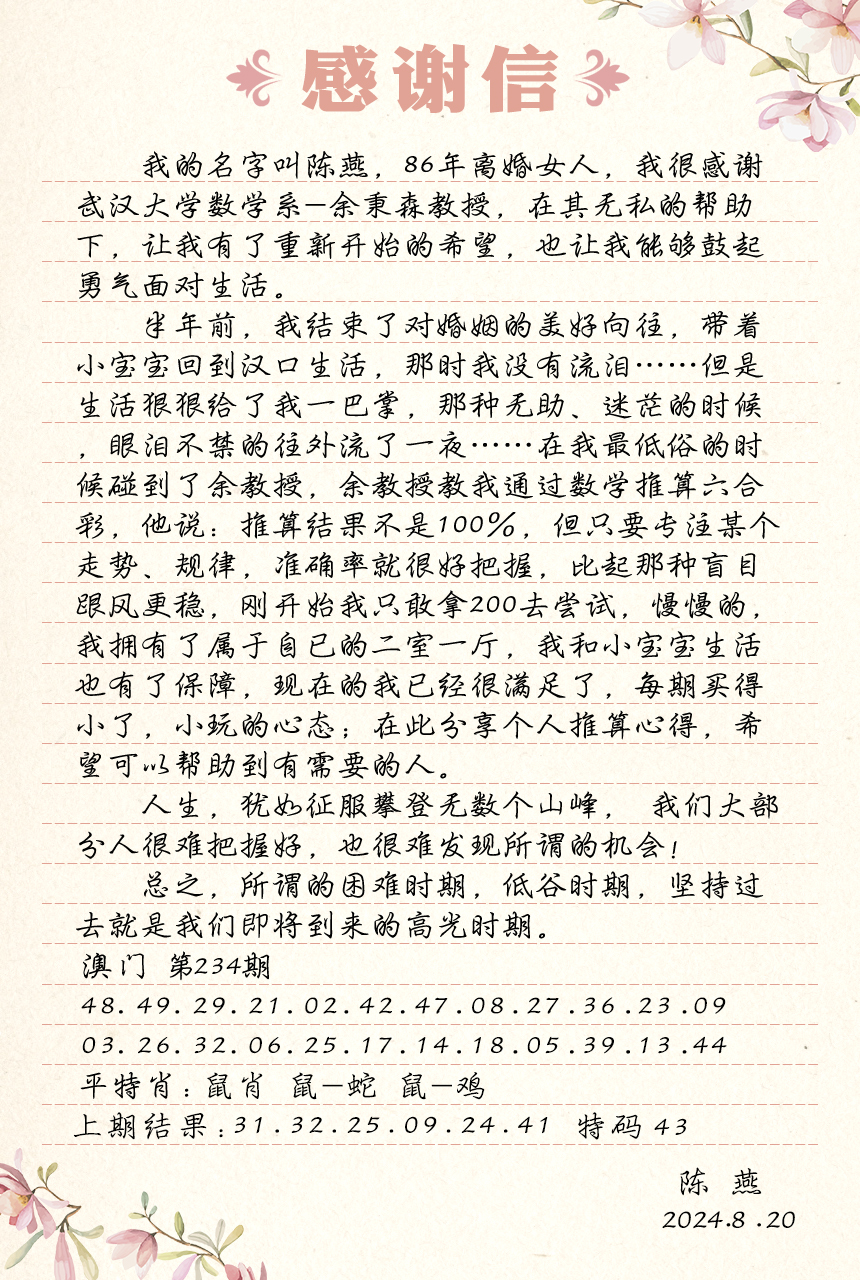 感谢信
我的名字叫陈燕，86年离婚女人，我很感谢
武汉大学数学系—余秉森教授，在其无私的帮助
下，让我有了重新开始的希望，也让我能够鼓起
勇气面对生活。
半年前，我结束了对婚姻的美好向往，带着
小宝宝回到汉口生活，那时我没有流泪……但是
生活狠狠给了我一巴掌，那种无助、迷茫的时候
，眼泪不禁的往外流了一夜……在我最低俗的时
候碰到了余教授，余教授教我通过数学推算六合
彩，他说：推算结果不是100%，但只要专注某个
走势、规律，准确率就很好把握，比起那种盲目
跟风更稳，刚开始我只敢拿200去尝试，慢慢的，
我拥有了属于自已的二室一厅，我和小宝宝生活
也有了保障，现在的我已经很满足了，每期买得
小了，小玩的心态；在此分享个人推算心得，希
望可以帮助到有需要的人。
人生，犹如征服攀登无数个山峰， 我们大部
分人很难把握好，也很难发现所谓的机会！
总之，所谓的困难时期，低谷时期，坚持过
去就是我们即将到来的高光时期。
澳门 第234期
48.49.29.21.02.42.47.08.27.36.23.09
03.26.32.06.25.17.14.18.05.39.13.44
平特肖：鼠肖 鼠—蛇 鼠—鸡
上期结果：31.32.25.09.24.41 特码 43
陈 燕
2024.8.20